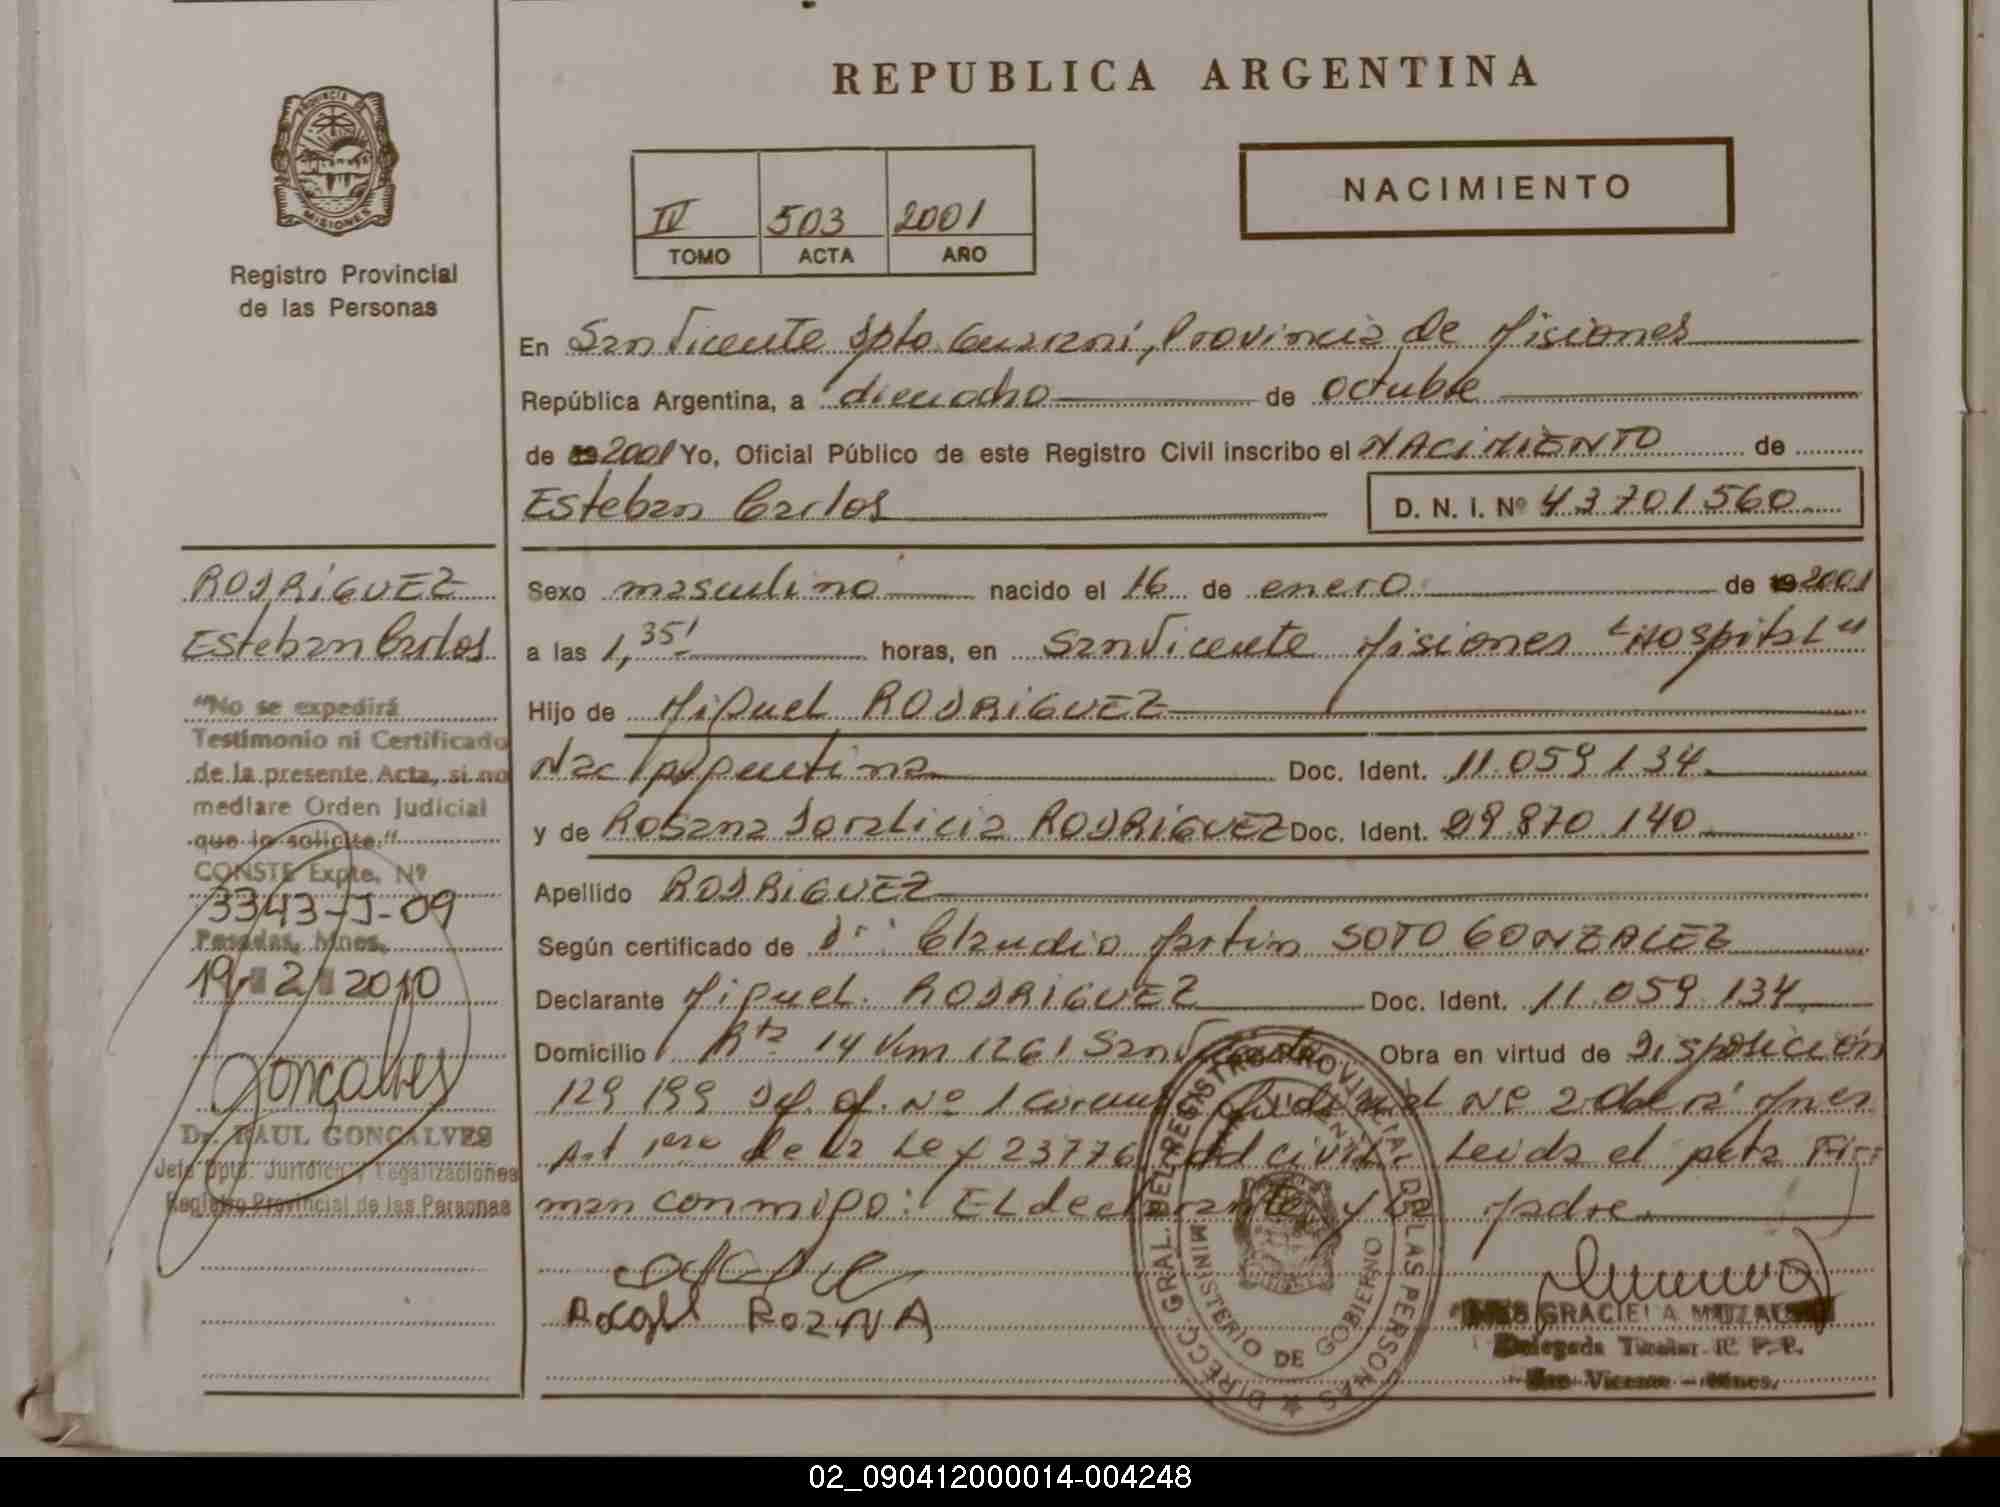 REPUBLICA ARGENTINA
PROVINCIA DE
MISIONES
Registro Provincial
de las Personas
IV 503 2001
TOMO ACTA AÑO
NACIMIENTO
En San Vicente Dpto. Guaraní, Provincia de Misiones
República Argentina, a dieciocho de octubre
de 19 2001 Yo, Oficial Público de este Registro Civil inscribo el NACIMIENTO de
Esteban Carlos D. N. I. Nº 43701560
RODRIGUEZ
Esteban Carlos
"No se expedirá
Testimonio ni Certificado
de la presente Acta, si no
mediare Orden Judicial
que lo solicite."
CONSTE Expte. Nº
3343-J-09
Posadas, Mnes.
19 2 2010
Goncalves
Dr. RAUL GONCALVES
Jefe Dpto. Jurídico y Legalizaciones
Registro Provincial de las Personas
Sexo masculino nacido el 16 de enero de 19 2001
a las 1,35 horas, en San Vicente Misiones "Hospital"
Hijo de Miguel RODRIGUEZ
Nac Argentina Doc. Ident. 11.059.134
y de Rosana RODRIGUEZ Doc. Ident. 29.870.140
Apellido RODRIGUEZ
Según certificado de Dr: Claudio Martin SOTO GONZALEZ
Declarante Miguel RODRIGUEZ Doc. Ident. 11.059.134
Domicilio Rta 14 Km 1261 San Vicente Obra en virtud de Disposición
129 199 Def. of. Nº 1 Judicial Nº 2 Oberá Mnes
Art 1ero de la Ley 23776 Cod civil. Leida el Acta Fir-
man conmigo: El declarante y la Madre.
DIRECC. GRAL. DEL REGISTRO PROVINCIAL DE LAS PERSONAS
MINISTERIO DE GOBIERNO
ROZNA
GRACIELA
Delegada Titular R. P. P.
San Vicente - Mnes.
02_090412000014-004248